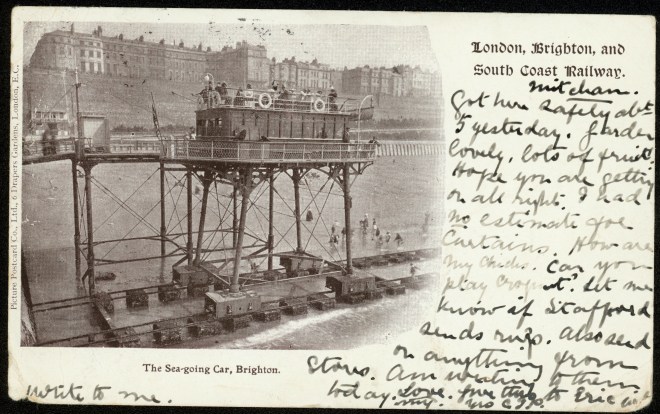 London, Brighton, and
South Coast Railway.
Mitcham.
Got here safely abt
5 yesterday. Garden
lovely, lots of fruit.
Hope you are getting
on all right. I had
no estimate for
Curtains. How are
my chicks. Can you
play Croquet. Let me
know if Stafford
sends rugs. Also send
on anything from
Stores. Am writing to them
today. Love. Give this to Eric
write to me.
The Sea-going Car, Brighton.
Picture Postcard Co., Ltd., 6 Drapers Gardens, London, E.C.